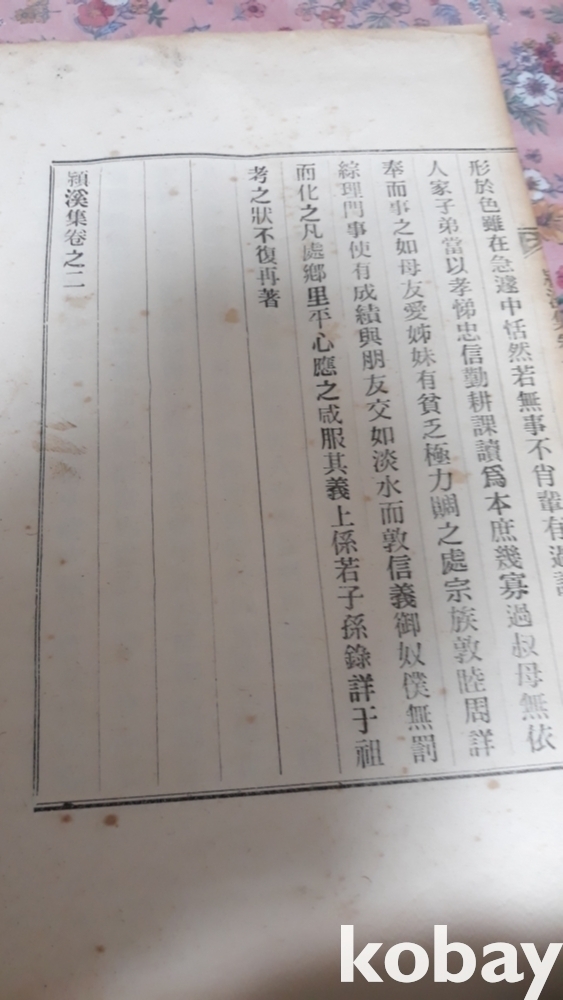 形於色雖在急遽中恬然若無事不肖輩有過
人家子弟當以孝悌忠信勤耕課讀爲本庶幾寡過叔母無依
奉而事之如母友愛姊妹有貧乏極力賙之處宗族敦睦周詳
綜理門事使有成績與朋友交如淡水而敦信義御奴僕無罰
而化之凡處鄕里平心應之咸服其義上係若子孫錄詳于祖
考之狀不復再著
潁溪集卷之二
kobay